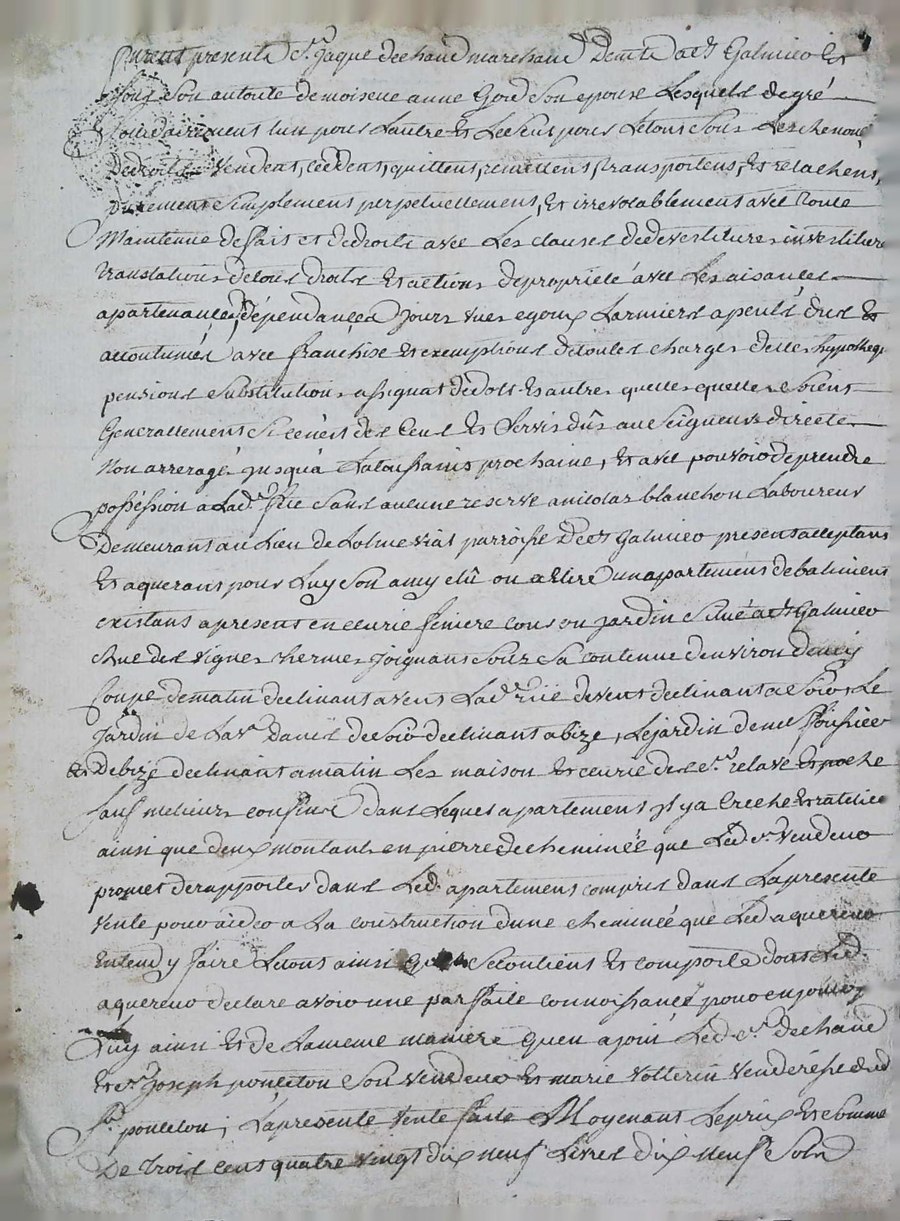 furent presents Sr. Jaque dechaud marchand Demt. a St. Galmier Et
Sous Son autorite demoiselle anne Gord Son epouse Lesquels de gré
Solidairement lun pour Lautre Et Le Seul pour Letout Sous Les renon
De droits Vendent, cedent, quittent, remettent, transportent, Et relachent,
purement Simplement perpetuellement, Et irrevocablement avec toute
Maintenue de fait et de droits avec Les clauses de devestiture investiture
translations de tous droits Et actions de propriete avec Les aisances
apartenances, dépendances, jours vues egoux Larmiers apercûs dus Et
accoutumés avec franchise Et exemptions de toutes charges dettes hypotheq
pensions Substitutions assignat de dots Et autres quelles quelles Soient
Generallement Si ce nest des Cens Et Servis dûs au Seigneur directe
Non arreragé jusqu'à Latoussaint prochaine, Et avec pouvoir de prendre
posséssion a Lad. Sans aucune reserve a nicolas blanchon Laboureur
Demeurant au Lieu de parroisse De St. Galmier present acceptant
Et aquerant pour Luy Son amy elû ou a Elire un apartement de batiment
existant apresent en ecurie feniere cour ou jardin Situé a St. Galmier
Rue des vignes joignant Sous Sa contenue d'environ demis
Coupe de matin declinant a vent Lad. ruë de vent declinant a Soir Le
jardin de La ve. David de Soir declinant a bize, Le jardin de me
Et De bize declinant a matin Les maison Et ecurie des Srs. relave Et
Sauf meilieurs confins dans Leques apartement jl y a Creche Et ratelier
ainsi que deux montants en pierre de cheminée que Led. Sr. Vendeur
promet de rapporter dans Led. apartement compris dans Lapresente
Vente pour aider a La construction dune cheminée que Led. aquereur
Entend y faire Letout ainsi quil Se contient Et comporte dont Led.
aquereur declare avoir une parfaite connoissance pour en jouir
Luy ainsi Et de La meme maniere quen a joui Led. Sr. dechaud
Et Sr. Joseph ponceton Son vendeur Et marie Venderesse aud
Sr. ponceton; Lapresente Vente faite Moyenant Le prix Et Somme
De trois cent quatre vingt dix neuf Livres dix neuf Sols